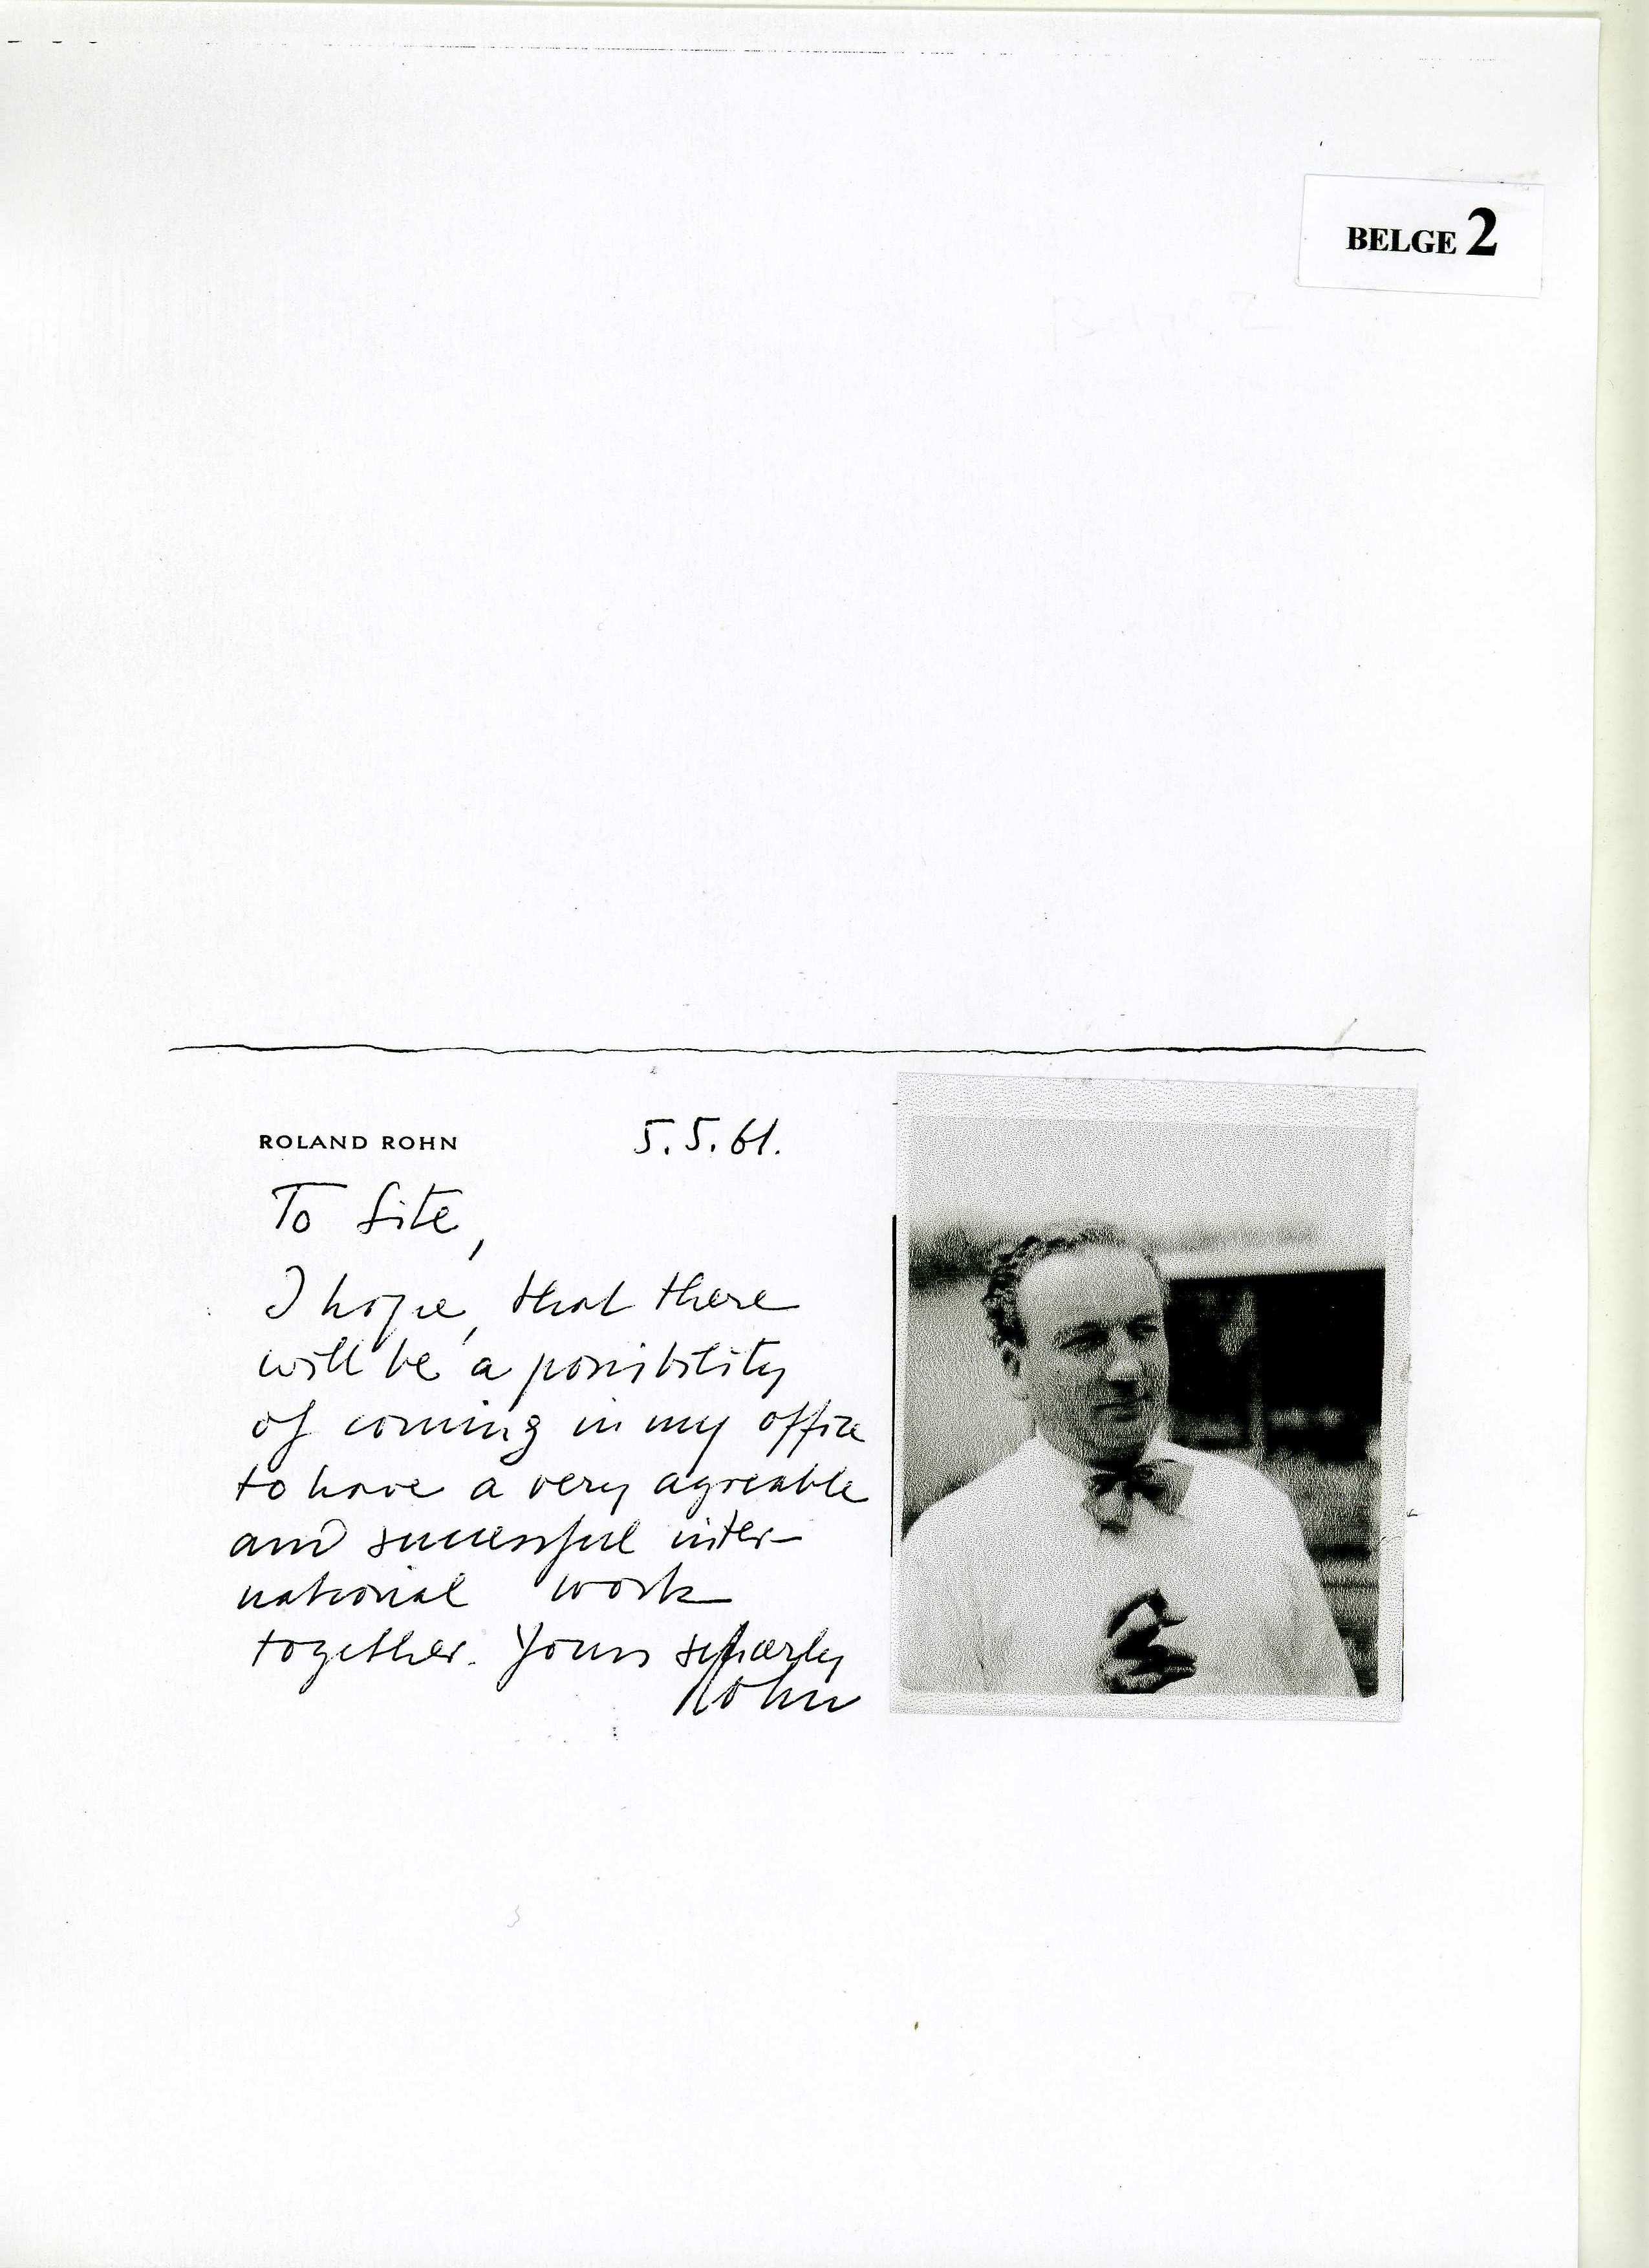 BELGE 2
ROLAND ROHN
5.5.61.
To Site,
I hope, that there
will be a possibility
of coming in my office
to have a very agreable
and successful inter-
national work
together. Yours
Rohn